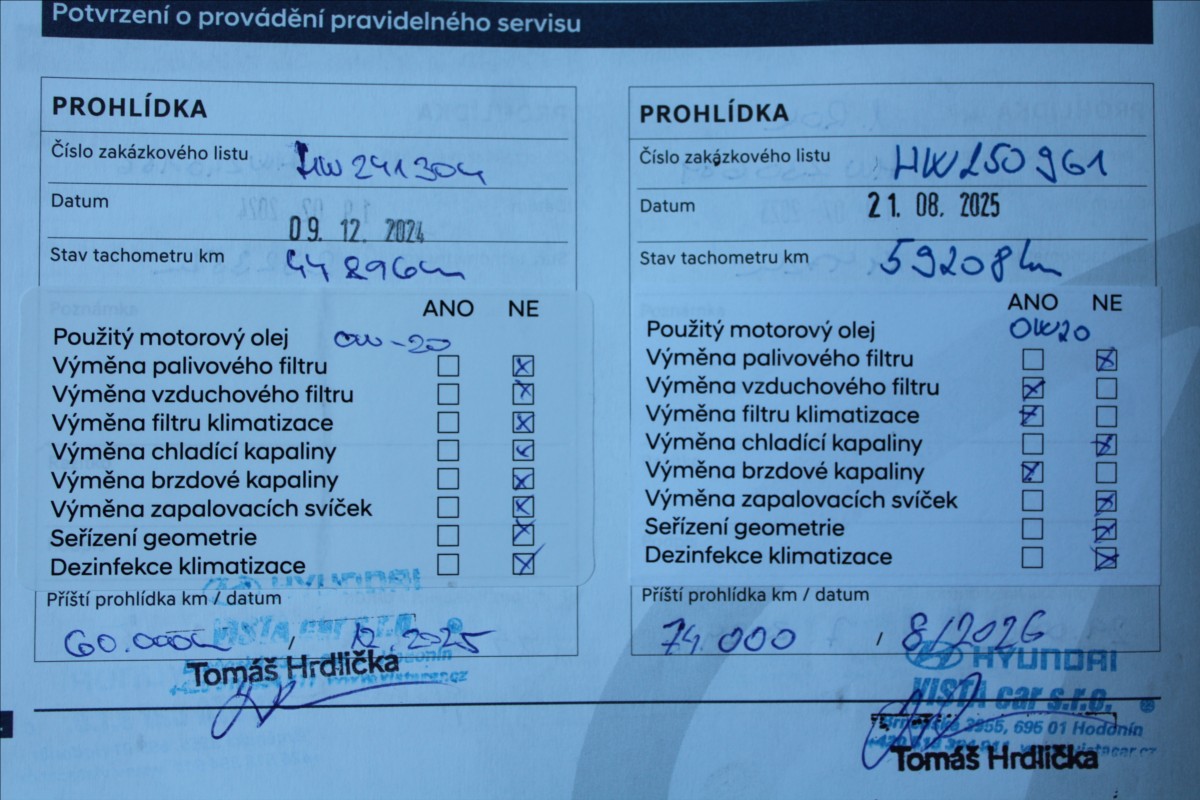 Potvrzení o provádění pravidelného servisu
PROHLÍDKA
Číslo zakázkového listu HW241304
Datum 09. 12. 2024
Stav tachometru km 44896km
ANO NE
Použitý motorový olej 0W-20
Výměna palivového filtru
Výměna vzduchového filtru
Výměna filtru klimatizace
Výměna chladící kapaliny
Výměna brzdové kapaliny
Výměna zapalovacích svíček
Seřízení geometrie
Dezinfekce klimatizace
Příští prohlídka km / datum
60.000km / 12.2025
HYUNDAI
VISTA car s.r.o.
Hodonín
Tomáš Hrdlička
PROHLÍDKA
Číslo zakázkového listu HW250961
Datum 21. 08. 2025
Stav tachometru km 59208km
ANO NE
Použitý motorový olej 0W20
Výměna palivového filtru
Výměna vzduchového filtru
Výměna filtru klimatizace
Výměna chladící kapaliny
Výměna brzdové kapaliny
Výměna zapalovacích svíček
Seřízení geometrie
Dezinfekce klimatizace
Příští prohlídka km / datum
74.000 / 8/2026
HYUNDAI
VISTA car s.r.o.
3955, 695 01 Hodonín
Tomáš Hrdlička